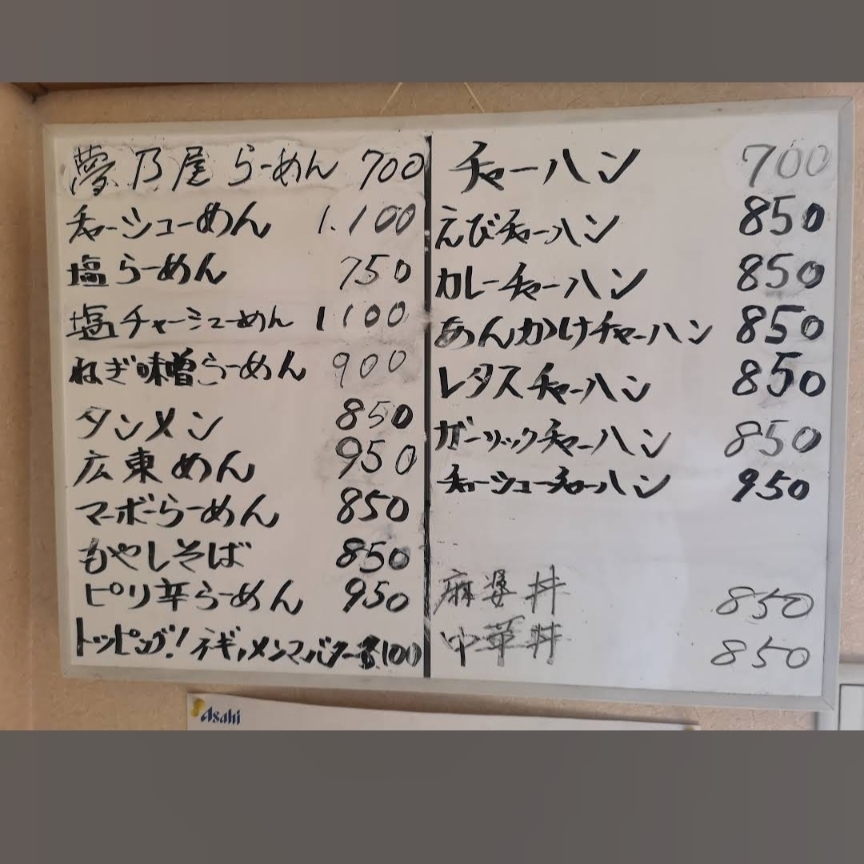 夢乃屋らーめん 700
チャーシューめん 1.100
塩らーめん 750
塩チャーシューめん 1100
ねぎ味噌らーめん 900
タンメン 850
広東めん 950
マーボーらーめん 850
もやしそば 850
ピリ辛らーめん 950
トッピング!ネギ,メンマ,バター各100
チャーハン 700
えびチャーハン 850
カレーチャーハン 850
あんかけチャーハン 850
レタスチャーハン 850
ガーリックチャーハン 850
チャーシューチャーハン 950
麻婆丼 850
中華丼 850
Asahi